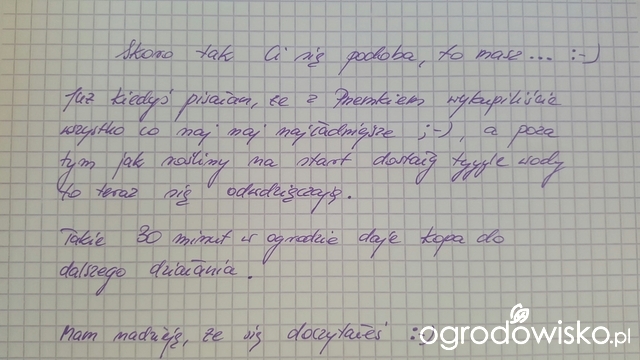 Skoro tak Ci się podoba, to masz... :-)
Już kiedyś pisałam, że z Przemkiem wykupiliście
wszystko co naj naj najładniejsze ;-), a poza
tym jak rośliny na start dostały tyyyle wody
to teraz się odwdzięczają.
Takie 30 minut w ogrodzie daje kopa do
dalszego działania.
Mam nadzieję, że się doczytałeś :-)
ogrodowisko.pl